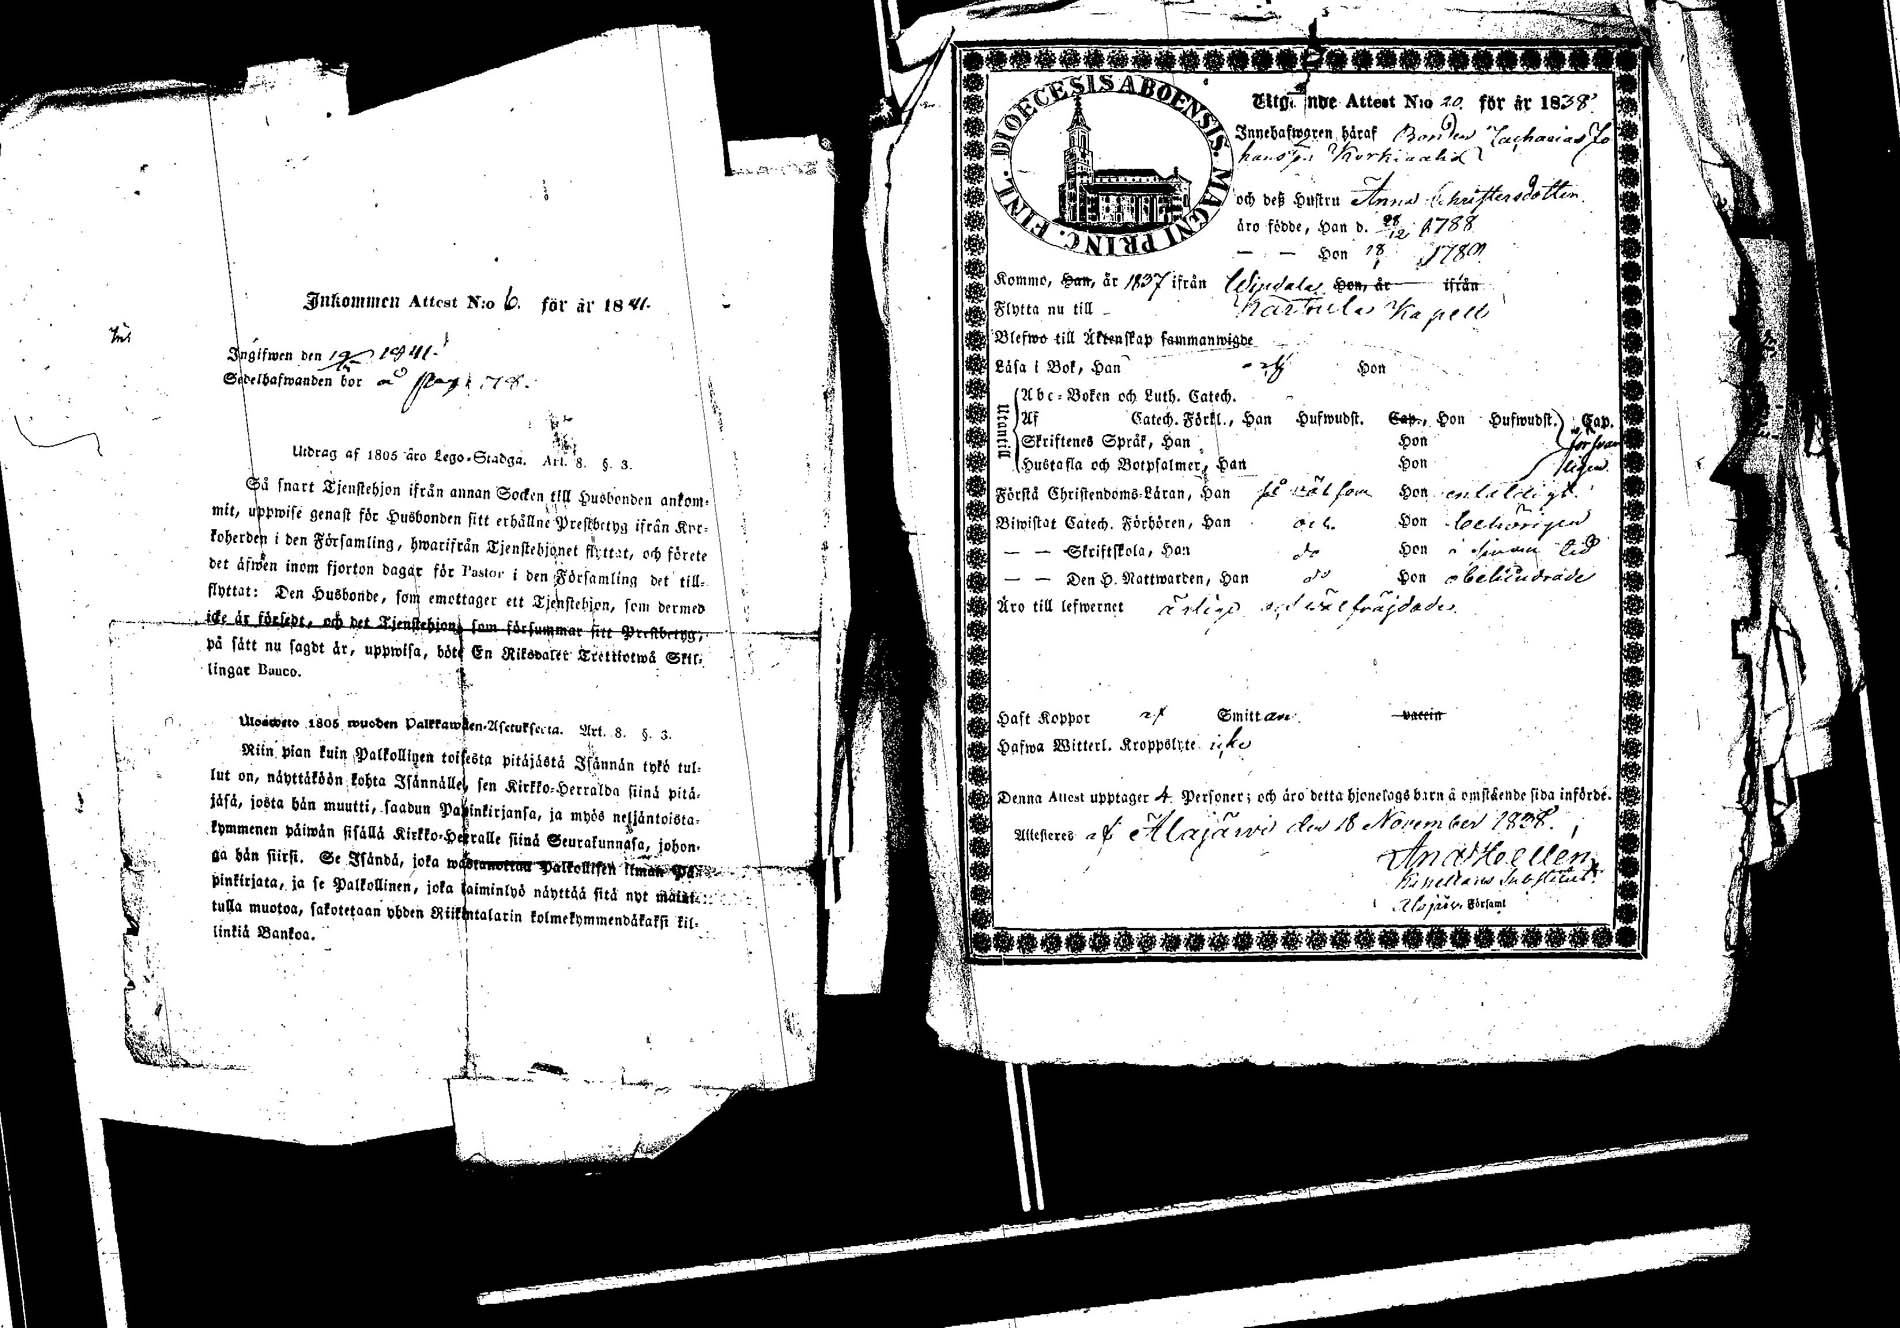 Inkommen Attest N:o 6. för år 1841.
Ingifwen den 1841.
Sedelhafwanden bor å pag. 78.
Utdrag af 1805 åro Lego-Stadga. Art. 8. §. 3.
Så snart Tjenstehjon ifrån annan Socken till Husbonden ankom-
mit, uppwise genast för Husbonden sitt erhållne Prestbetyg ifrån Kyr-
koherden i den Församling, hwarifrån Tjenstehjonet flyttat, och förete
det äfwen inom fjorton dagar för Pastor i den Församling det till-
flyttat: Den Husbonde, som emottager ett Tjenstehjon, som dermed
icke är försedt, och det Tjenstehjon, som försummar sitt Prestbetyg,
på sätt nu sagdt är, uppwisa, böte En Riksdaler Trettiotwå Skil-
lingar Banco.
Ulosweto 1805 wuoden Palkkawäen-Asetuksesta. Art. 8. §. 3.
Niin pian kuin Palkollinen toisesta pitäjästä Isännän tykö tul-
lut on, näyttäköön kohta Isännälle, sen Kirkko-Herralda siinä pitä-
jäsä, josta hän muutti, saadun Papinkirjansa, ja myös neljäntoista-
kymmenen päiwän sisällä Kirkko-Herralle siinä Seurakunnasa, johon-
ga hän siirsi. Se Isändä, joka wastanottaa Palkollisen ilman Pa-
pinkirjata, ja se Palkollinen, joka laiminlyö näyttää sitä nyt mainit-
tulla muotoa, sakotetaan yhden Riikintalarin kolmekymmendäkaksi kil-
linkiä Bankoa.
FINL. DIOECESIS ABOENSIS. MAGNI PRINC.
Utgående Attest N:o 20. för år 1838.
Innehafwaren häraf Bonden Zacharias Jo
hansson Korkiaaho
och deß Hustru Anna Christersdotter
äro födde, Han d. 28/12 1788
— — Hon 18
Komme, Han, år 1837 ifrån Windala Hon, år ifrån
Flytta nu till Karstula Kapell
Blefwo till Äktenskap sammanwigde
Läsa i Bok, Han Hon
Utantill
Abc-Boken och Luth. Catech.
Af Catech. Förkl., Han Hufwudst. Cap., Hon Hufwudst. Cap.
Skriftenes Språk, Han Hon försvar
Hustafla och Botpsalmer, Han Hon ligen
Förstå Christendoms-Läran, Han så väl som Hon enfaldigt.
Biwistat Catech. Förhören, Han och Hon behörigen
— — Skriftskola, Han do Hon i sinom tid
— — Den H. Nattwarden, Han do Hon obehindrade
Äro till lefwernet ärlige och välfrägdade.
Haft Koppor Smittan vaccin
Hafwa Witterl. Kroppslyte icke
Denna Attest upptager 4 Personer; och äro detta hjonelags barn å omstående sida införde.
Attesteres af Alajärvi den 18 November 1838.
And. Hoellen
Kapellans Substitut
Alajärv. Församl